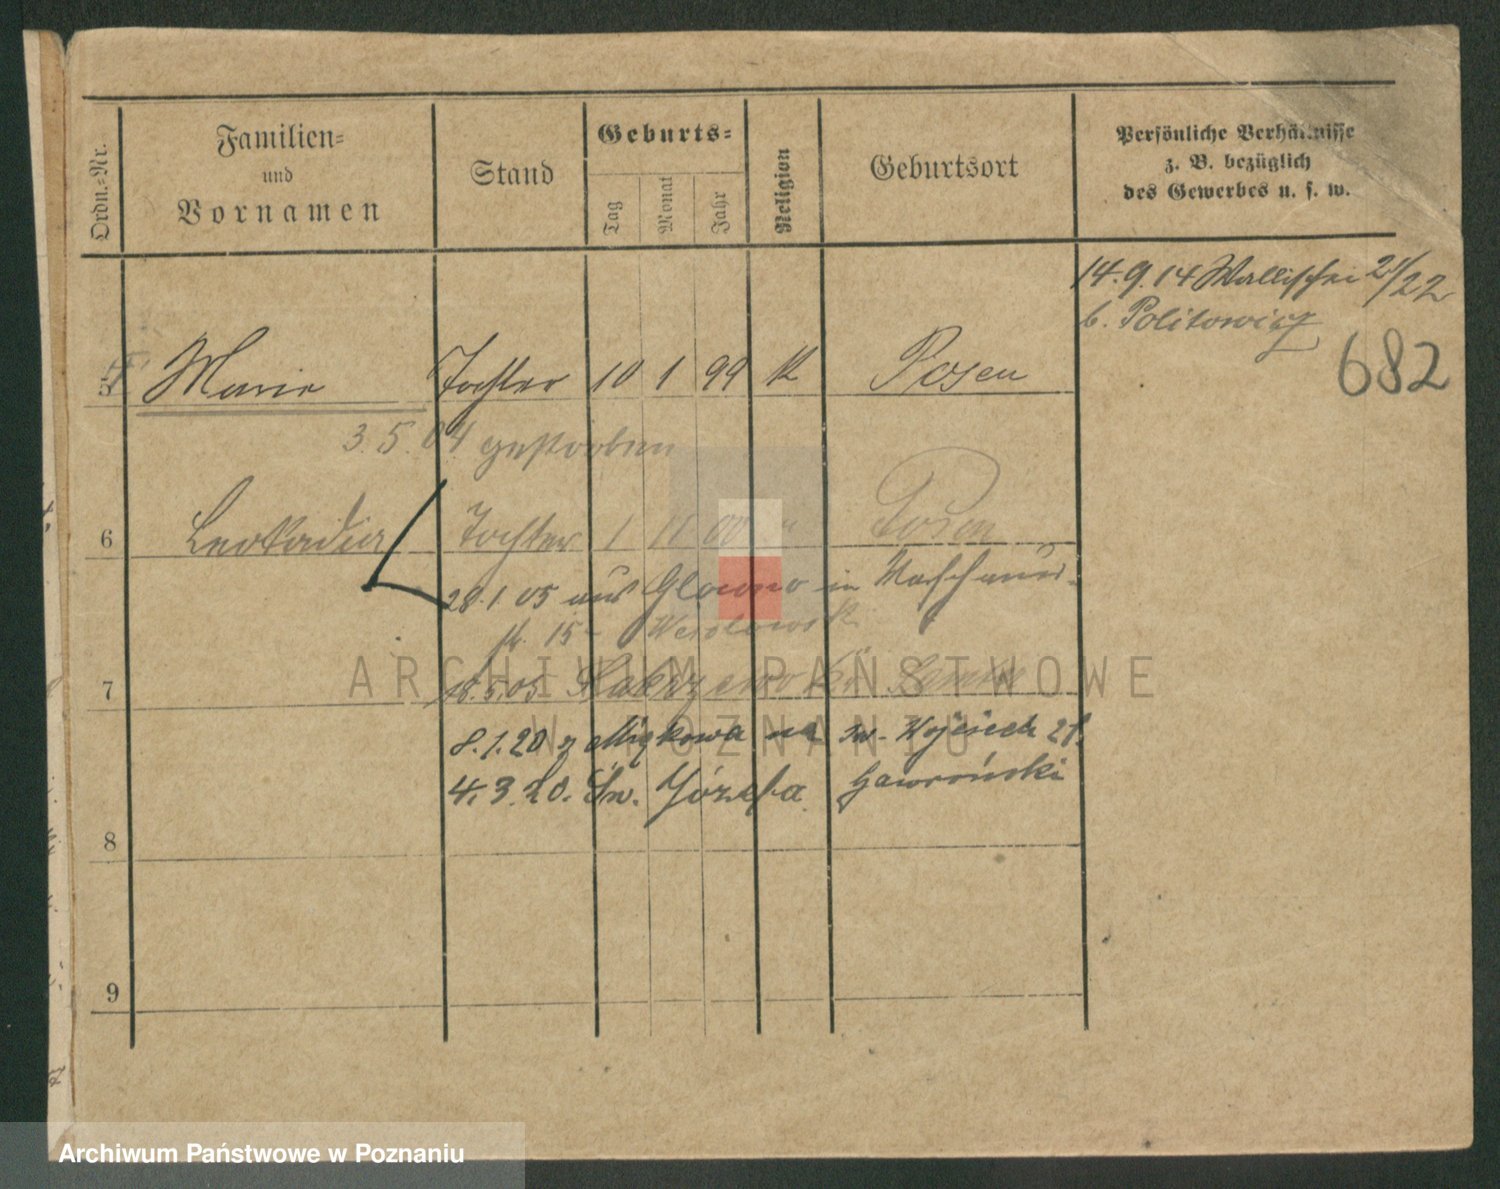 Ordn.=Nr.
Familien=
und
Vornamen
Stand
Geburts=
Tag
Monat
Jahr
Religion
Geburtsort
Persönliche Verhältnisse
z. B. bezüglich
des Gewerbes u. s. w.
14.9.14 Wallischei 21/22
b. Politowicz
682
5 Marie Tochter 10 1 99 K Posen
3.5.04 gestorben
6 Leokadia Tochter 1 11 00 " Posen
28.1 05 aus Glowno in
15
7
18.5.05
8.1.20 z na św. Wojciech
4.3.20. Św. Józefa Gaworński
8
9
ARCHIWUM PAŃSTWOWE
W POZNANIU
Archiwum Państwowe w Poznaniu